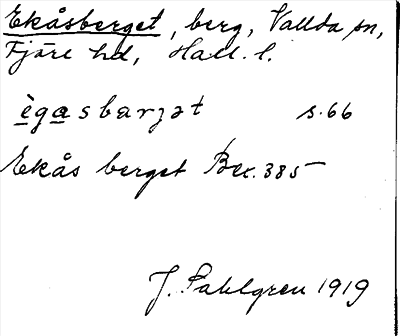 Ekåsberget, berg, Vallda sn,
Fjäre hd, Hall. l.
ègasbarjət s. 66
Ekås berget Bex. 385
J. Sahlgren 1919